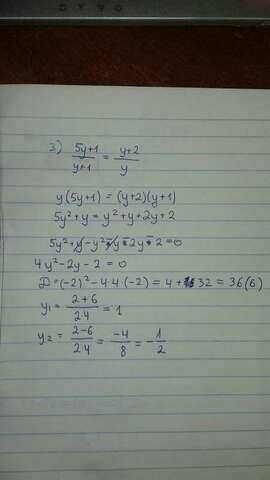 3) (5y+1)/(y+1) = (y+2)/y
y(5y+1) = (y+2)(y+1)
5y²+y = y²+y+2y+2
5y²+y-y²-y-2y-2=0
4y²-2y-2=0
D=(-2)²-4·4(-2)=4+32=36(6)
y₁ = (2+6)/(24) = 1
y₂ = (2-6)/(24) = -4/8 = -1/2